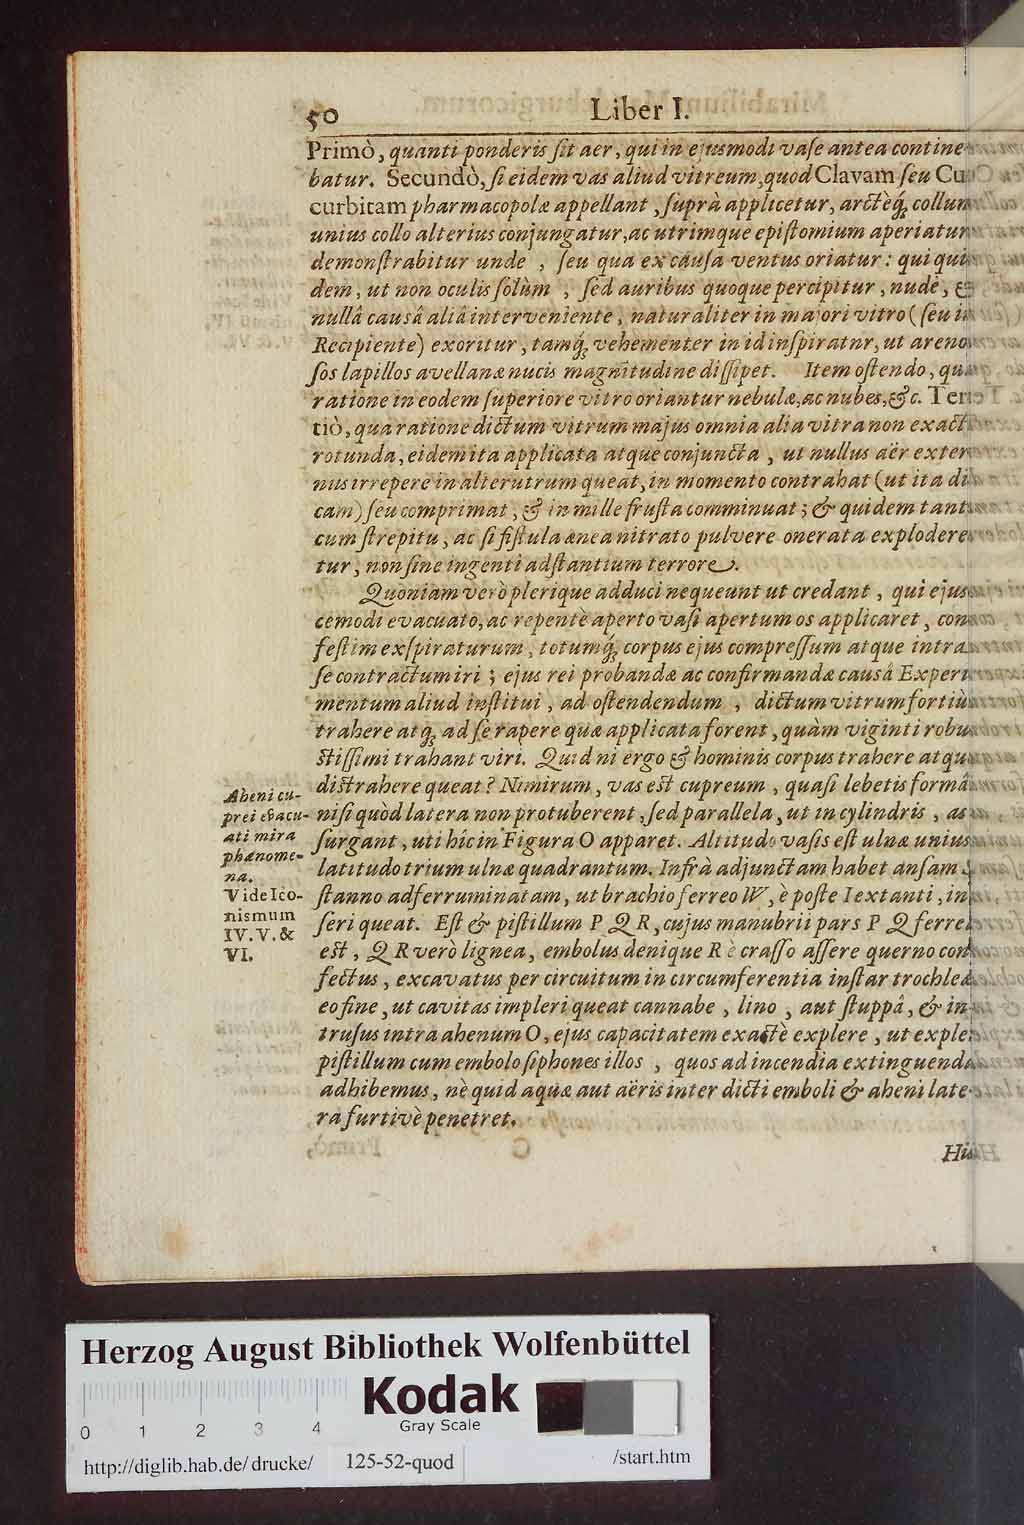 50 Liber I.
Primò, quanti ponderis ſit aer, qui in ejusmodi vaſe antea contine-
batur. Secundò, ſi eidem vas aliud vitreum, quod Clavam ſeu Cu
curbitam pharmacopolæ appellant, ſuprà applicetur, arctèq́; collum
unius collo alterius conjungatur, ac utrimque epiſtomium aperiatur
demonſtrabitur unde, ſeu qua ex cauſa ventus oriatur: qui qui
dem, ut non oculis ſolùm, ſed auribus quoque percipitur, nudè, &
nullâ causâ aliâ interveniente, naturaliter in majori vitro (ſeu in
Recipiente) exoritur, tamq́; vehementer in id inſpiratnr, ut areno
ſos lapillos avellanæ nucis magnitudine diſſipet. Item oſtendo, qua
ratione in eodem ſuperiore vitro oriantur nebulæ, ac nubes, &c. Ter
tiò, qua ratione dictum vitrum majus omnia alia vitra non exactè
rotunda, eidem ita applicata atque conjuncta, ut nullus aër exter
nus irrepere in alterutrum queat, in momento contrahat (ut ita di
cam) ſeu comprimat, & in mille fruſta comminuat; & quidem tanto
cum ſtrepitu, ac ſi fiſtula ænea nitrato pulvere onerata explodere
tur, non ſine ingenti adſtantium terrore.
Quoniam verò plerique adduci nequeunt ut credant, qui ejus
cemodi evacuato, ac repentè aperto vaſi apertum os applicaret, con
feſtim exſpiraturum, totumq́; corpus ejus compreſſum atque intra
ſe contractum iri; ejus rei probandæ ac confirmandæ causâ Experi
mentum aliud inſtitui, ad oſtendendum, dictum vitrum fortiùs
trahere atq́; ad ſe rapere quæ applicata forent, quàm viginti robu
ſtiſſimi trahant viri. Quid ni ergo & hominis corpus trahere atque
diſtrahere queat? Nimirum, vas eſt cupreum, quaſi lebetis formâ
niſi quòd latera non protuberent, ſed parallela, ut in cylindris, as
ſurgant, uti hîc in Figura O apparet. Altitudo vaſis eſt ulnæ unius
latitudo trium ulnæ quadrantum. Infrà adjunctam habet anſam
ſtanno adferruminatam, ut brachio ferreo W, è poſte I extanti, in
ſeri queat. Eſt & piſtillum P Q R, cujus manubrii pars P Q ferrea
eſt, Q R verò lignea, embolus denique R è craſſo aſſere querno con
fectus, excavatus per circuitum in circumferentia inſtar trochleæ
eo fine, ut cavitas impleri queat cannabe, lino, aut ſtuppâ, & in-
truſus intra ahenum O, ejus capacitatem exactè explere, ut explet
piſtillum cum embolo ſiphones illos, quos ad incendia extinguenda
adhibemus, nè quid aquæ aut aëris inter dicti emboli & aheni late-
ra furtivè penetret.
Aheni cu-
prei evacu-
ati mira
phænome-
na.
Vide Ico-
nismum
IV. V. &
VI.
Herzog August Bibliothek Wolfenbüttel
Kodak
Gray Scale
0 1 2 3 4
http://diglib.hab.de/drucke/ 125-52-quod /start.htm